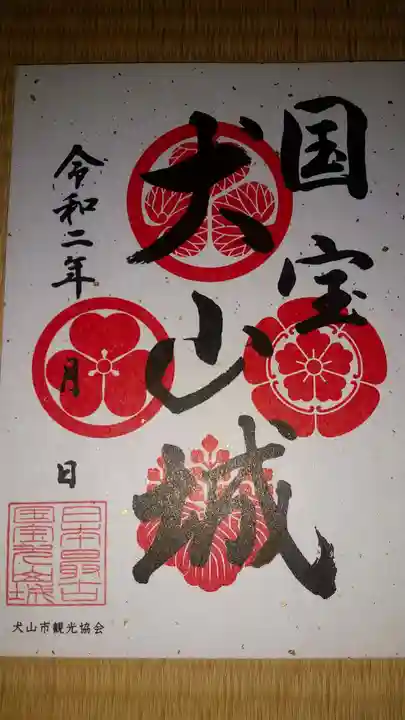 国宝
犬山城
令和二年 月 日
日本最古
国宝犬山城
犬山市観光協会